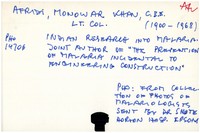 A4
AFRIDI, MONOWAR KHAN, C.B.E.
LT COL. (1900-1968)
PHO 14706
INDIAN RESEARCH INTO MALARIA.
JOINT AUTHOR OF "THE PREVENTION
OF MALARIA INCIDENTAL TO
ENGINEERING CONSTRUCTION"
PHO: FROM COLLECTION
OF PHOTOS OF
MALARIOLOGISTS
SENT BY DR
GORDON